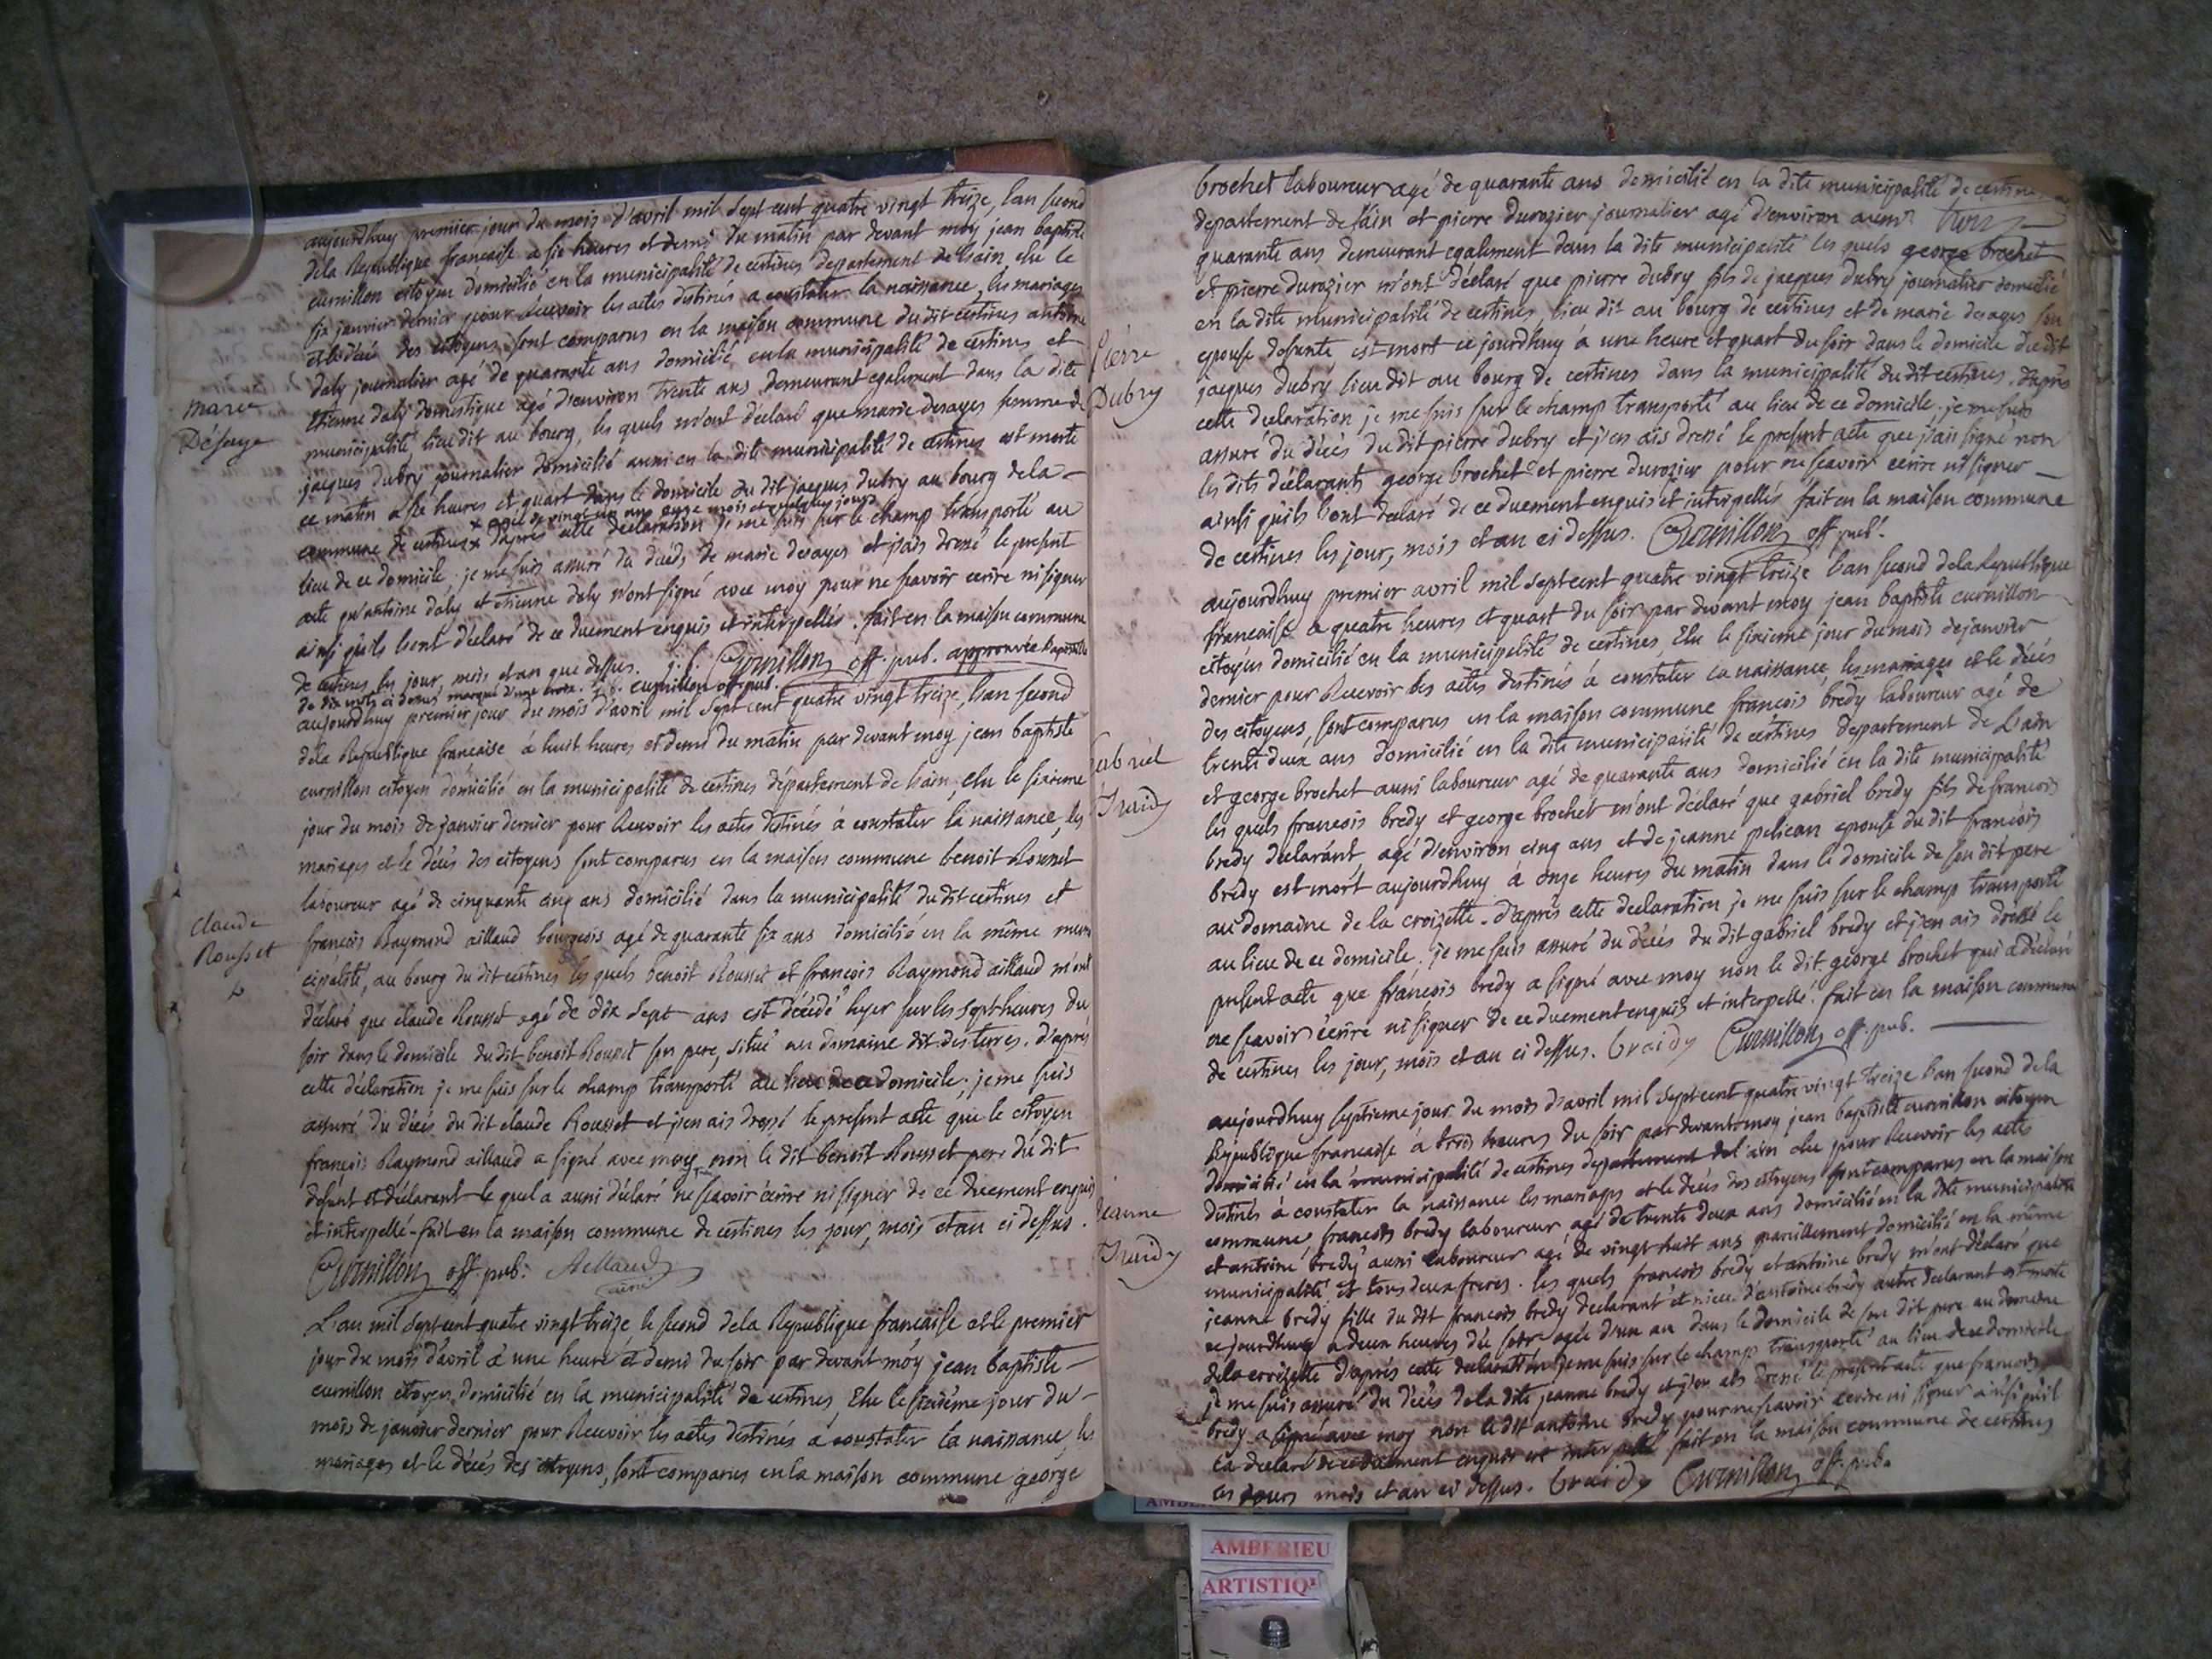 marie
Désaye
aujourdhuy premier jour du mois d'avril mil sept cent quatre vingt treize, l'an second
dela Republique francaise a six heures et demi du matin par devant moy jean baptiste
curnillon citoyen domicilié en la municipalité de certines departement de l'ain, elu le
six janvier dernier pour recevoir les actes destinés a constater la naissance, les mariages
et le décés des citoyens sont comparus en la maison commune du dit certines antoine
daly journalier agé de quarante ans domicilié en la municipalité de certines et
etienne daly domestique agé d'environ trente ans demeurant egalement dans la dite
municipalité, lieu dit au bourg, les quels m'ont déclaré que marie desayes femme de
jacques dubry journalier domicilié aussi en la dite municipalité de certines est morte
ce matin a six heures et quart dans le domicile du dit jacques dubry au bourg dela
x agée de vingt un ans onze mois et quelques jours
commune de certines x d'après cette declaration je me suis sur le champ transporté au
lieu de ce domicile; je me suis assuré du décés de marie desayes et j'ais dressé le present
acte qu'antoine daly et etienne daly n'ont signé avec moy pour ne scavoir ecrire ni signer
ainsi qu'ils l'ont déclaré de ce duement enquis et interpellés. fait en la maison commune
de certines les jour, mois et an que dessus. j. b. Curnillon off. pub. approuvée l'apostille
de dix mots ci dessus marqué d'une croix. j. b. curnillon off. pub.
aujourdhuy premier jour du mois d'avril mil sept cent quatre vingt treize, l'an second
déla Republique francaise à huit heures et demi du matin par devant moy jean baptiste
curnillon citoyen domicilié en la municipalité de certines département de l'ain, elu le sixieme
jour du mois de janvier dernier pour recevoir les actes destinés à constater la naissance, les
mariages et le décés des citoyens sont comparus en la maison commune benoit Rousset
laboureur agé de cinquante cinq ans domicilié dans la municipalité du dit certines et
claude
Rousset
françois Raymond aillaud bourgeois agé de quarante six ans domicilié en la même muni
cipalité, au bourg du dit certines les quels benoit Rousset et françois Raymond aillaud m'ont
déclaré que claude Rousset agé de dix sept ans est décédé hyer sur les sept heures du
soir dans le domicile du dit benoit Rousset son pere, situé au domaine dit des terres. d'après
cette déclaration je me suis sur le champ transporté au lieu de ce domicile; je me suis
assuré du décés du dit claude Rousset et j'en ais dressé le present acte que le citoyen
françois Raymond aillaud a signé avec moy non le dit benoit Rousset pere du dit
défunt et déclarant le quel a aussi déclaré ne scavoir écrire ni signer de ce duement enquis
et interpellé. fait en la maison commune de certines les jour, mois et an ci dessus.
Curnillon off. pub. Aillaud
ainé
L'an mil sept cent quatre vingt treize le second dela Republique francaise et le premier
jour du mois d'avril à une heure et demi du soir par devant moy jean baptiste
curnillon citoyen domicilié en la municipalité de certines Elu le sixième jour du
mois de janvier dernier pour recevoir les actes destinés à constater la naissance, les
mariages et le décés des citoyens, sont comparus en la maison commune george
brochet laboureur agé de quarante ans domicilié en la dite municipalité de certines
departement de l'ain et pierre durozier journalier agé d'environ aussi
quarante ans demeurant egalement dans la dite municipalité les quels george brochet
et pierre durozier m'ont déclaré que pierre dubry fils de jacques dubry journalier domicilié
en la dite municipalité de certines, lieu dit au bourg de certines et de marie desayes son
Pierre
Dubry
epouse defunte est mort ce jourdhuy à une heure et quart du soir dans le domicile du dit
jacques dubry lieu dit au bourg de certines dans la municipalité du dit certines. d'après
cette declaration je me suis sur le champ transporté au lieu de ce domicile. je me suis
assuré du décés du dit pierre dubry et j'en ais dressé le present acte que j'ais signé non
les dits déclarants george brochet et pierre durozier pour ne scavoir ecrire ni signer
ainsi qu'ils l'ont declaré de ce duement enquis et interpellés fait en la maison commune
de certines les jour, mois et an ci dessus. Curnillon off. pub.
aujourdhuy premier avril mil sept cent quatre vingt treize l'an second dela Republique
francaise a quatre heures et quart du soir par devant moy jean baptiste curnillon
citoyen domicilié en la municipalité de certines, Elu le sixieme jour du mois de janvier
dernier pour recevoir les actes destinés à constater la naissance, les mariages et le décés
des citoyens, sont comparus en la maison commune francois bredy laboureur agé de
gabriel
Braidy
trente deux ans domicilié en la dite municipalité de certines departement de l'ain
et george brochet aussi laboureur agé de quarante ans domicilié en la dite municipalité
les quels francois bredy et george brochet m'ont déclaré que gabriel bredy fils de francois
bredy declarant, agé d'environ cinq ans et de jeanne pelican epouse du dit francois
bredy est mort aujourdhuy à onze heures du matin dans le domicile de son dit pere
au domaine de la croizette. d'après cette declaration je me suis sur le champ transporté
au lieu de ce domicile. je me suis assuré du décés du dit gabriel bredy et j'en ais dressé le
present acte que françois bredy a signé avec moy non le dit george brochet qui a déclaré
ne scavoir écrire ni signer de ce duement enquis et interpellé. fait en la maison commune
de certines les jour, mois et an ci dessus. braidy Curnillon off. pub.
aujourdhuy septieme jour du mois d'avril mil sept cent quatre vingt treize l'an second dela
Republique francaise à trois heures du soir par devant moy jean baptiste curnillon citoyen
domicilié en la municipalité de certines departement de l'ain elu pour recevoir les actes
destinés à constater la naissance les mariages et le décés des citoyens sont comparus en la maison
jeanne
Braidy
commune francois bredy laboureur agé de trente deux ans domicilié en la dite municipalité
et antoine bredy aussi laboureur agé de vingt huit ans pareillement domicilié en la même
municipalité et tous deux freres. les quels francois bredy et antoine bredy m'ont déclaré que
jeanne bredy fille du dit francois bredy declarant et niece d'antoine bredy autre declarant est morte
ce jourdhuy a deux heures du soir agée d'un an dans le domicile de son dit pere au domaine
dela croizette d'après cette declaration je me suis sur le champ transporté au lieu de ce domicile
je me suis assuré du décés dela dite jeanne bredy et j'en ais dressé le present acte que francois
bredy a signé avec moy non le dit antoine bredy pour ne scavoir ecrire ni signer ainsi qu'il
l'a declaré de ce duement enquis et interpellé fait en la maison commune de certines
les jours mois et an ci dessus. braidy Curnillon off. pub.
AMBERIEU
ARTISTIQ